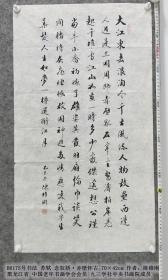 大江東去浪淘盡千古風流人物故壘西邊
人道是三國周郎赤壁亂石穿空驚濤拍岸捲
起千堆雪江山如畫一時多少豪傑遙想公瑾
當年小喬初嫁了雄姿英發羽扇綸巾談笑
間檣櫓灰飛煙滅故國神遊多情應笑我早生
華髮人生如夢一樽還酹江月
念奴娇·赤壁怀古. 70×42cm 作者：
黑龙江省 中国老年书画学会会员 九三学社中央书画院成员